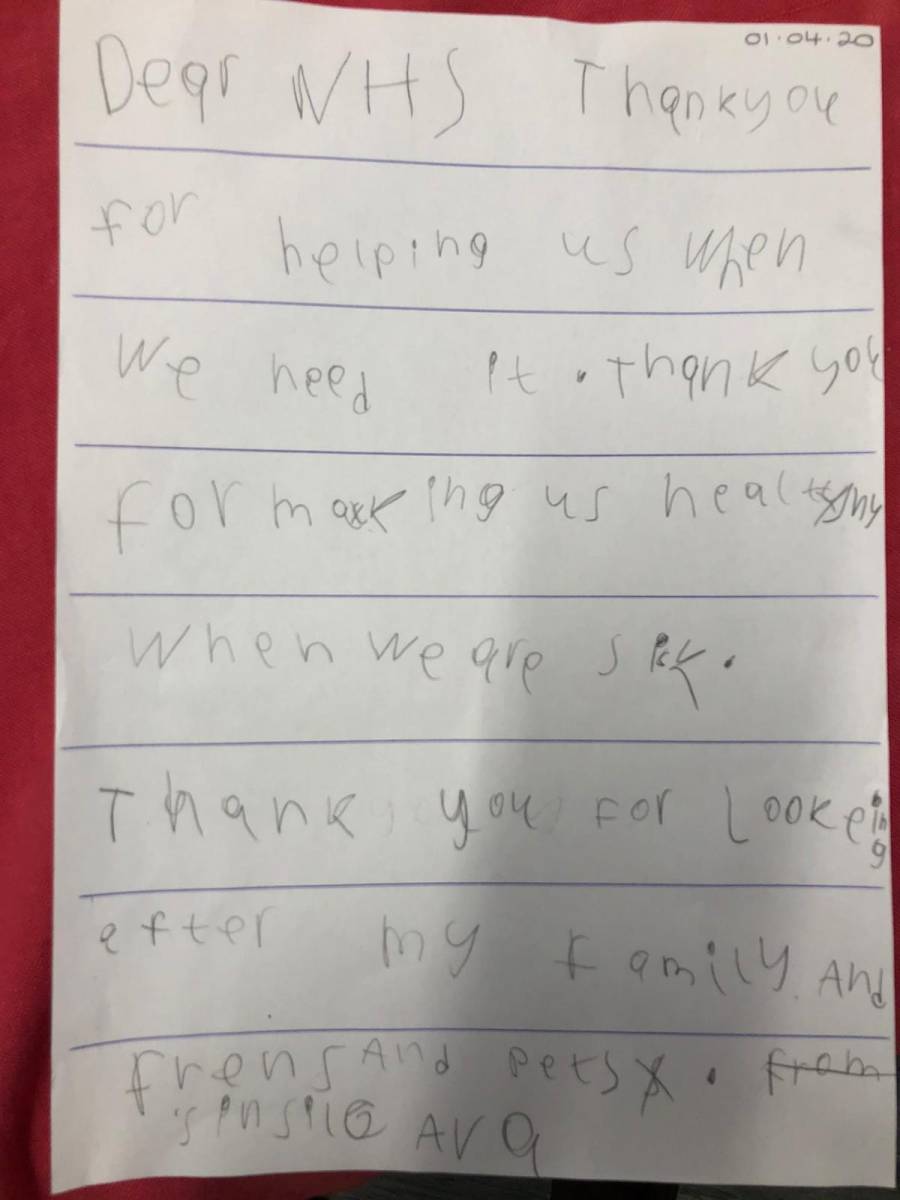 01.04.20
Dear NHS Thankyou
for helping us when
We need it. Thank you
for making us healthy
when we are sik.
Thank you for Lookeing
efter my family And
frens And Pets. from
sinsile AvA